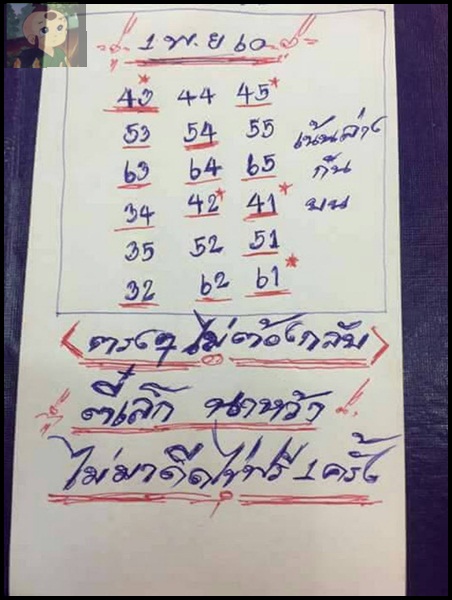 1 พ.ย 60
43 44 45
53 54 55
63 64 65
34 42 41
35 52 51
32 62 61
เน้นล่าง
กัน
บน
ตรงๆ ไม่ต้องกลับ
ตี๋เล็ก นาหว้า
ไม่มาดีดไข่ฟรี 1 ครั้ง